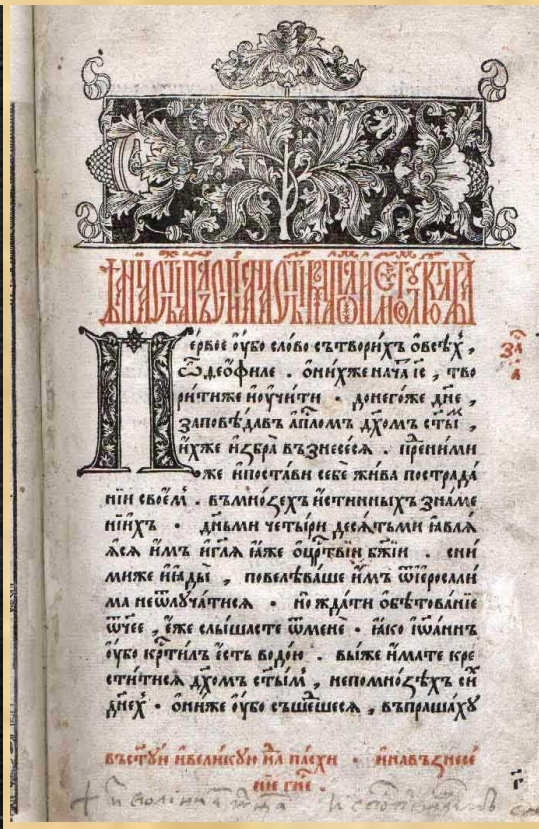 Первое оу҆́бо сло́во сътвори́хъ ѻ҆всѣ́хъ,
ѽ де́ѡфиле . ѻ҆ни́хже нача̀ і҆с҃, тво
ри́тиже и҆оу҆чи́ти . донего́же дн҃е,
заповѣ́давъ а҆пⷭ҇ломъ дх҃омъ ст҃ы́м,
и҆́хже и҆збра̀ възнесе́сѧ . пре́ними
же и҆поста́ви себѐ жи́ва пострада́
нїи свое́мъ . въмно́зехъ и҆́стинныхъ зна́ме
нїихъ . дн҃ьми четы́ри десѧ́тьми ꙗ҆влѧ́
ѧсѧ и҆̀мъ и҆гл҃ѧ ꙗ҆́же ѻ҆црⷭ҇твїи бж҃їи . сни́
миже и҆ꙗды̀, повелѣ́ваше и҆̀мъ ѿі҆еросали́
ма неѿлуча́тисѧ . но жда́ти ѻ҆бѣтова́нїе
ѿчее, е҆́же слы́шасте ѿменѐ . ꙗ҆́ко і҆ѡ҃а́ннъ
оу҆́бо крⷭ҇ти́лъ е҆́сть водо́ю . вы́же и҆́мате кре
сти́тисѧ дх҃омъ ст҃ы́мъ, непомно́зѣхъ си́хъ
дне́хъ . ѻ҆ни́же оу҆́бо съше́дшесѧ, въпраша́хꙋ
въст҃ꙋ́ю и҆вели́кꙋю н҃лѧ па́схи . и҆навъзнесе́
нїе гн҃е .
за҃
а҃
г҃